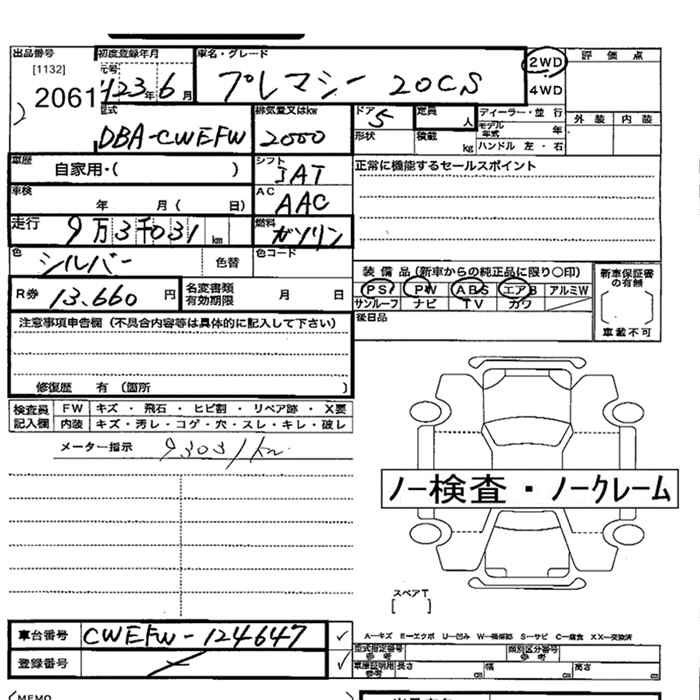 出品番号 初度登録年月 車名・グレード 2WD 評価点
[1132] 元号 H23年 6月 プレマシー 20CS 4WD
2061
型式 排気量又はkw ドア 5 定員 人 ディーラー・並行 外装 内装
DBA-CWEFW 2000 形状 積載 kg モデル年式 年
ハンドル 左・右
車歴 自家用・( ) シフト 5AT 正常に機能するセールスポイント
車検 年 月( 日) AC AAC
走行 9万3千031km 燃料 ガソリン
色 シルバー 色替 色コード
装備品(新車からの純正品に限り○印) 新車保証書の有無
R券 13.660円 名変書類有効期限 月 日 PS PW ABS エアB アルミW
サンルーフ ナビ TV カワ
車載不可
注意事項申告欄(不具合内容等は具体的に記入して下さい) 後日品
修復歴 有(箇所 )
検査員 FW キズ・飛石・ヒビ割・リペア跡・X要
記入欄 内装 キズ・汚レ・コゲ・穴・スレ・キレ・破レ
メーター指示 93031km
ノー検査・ノークレーム
スペアT
[ ]
車台番号 CWEFW-124647 ✓ A-キズ E-エクボ U-凹み W-補修跡 S-サビ C-腐食 XX-交換済
型式指定番号 参考 類別区分番号 参考
登録番号 ✓ 車庫証明用 参考 長さ cm 幅 cm 高さ cm
(MEMO